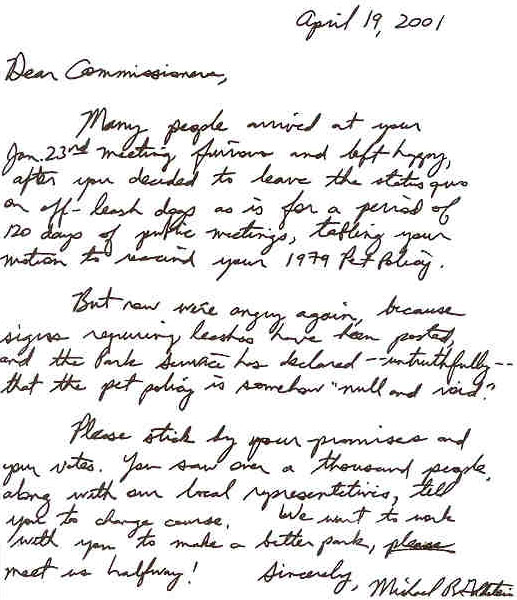 April 19, 2001
Dear Commissioners,
Many people arrived at your
Jan. 23rd meeting furious and left happy,
after you decided to leave the status quo
on off-leash dogs as is for a period of
120 days of public meetings, tabling your
motion to rescind your 1979 Pet Policy.
But now we're angry again, because
signs requiring leashes have been posted,
and the Park Service has declared --untruthfully--
that the pet policy is somehow "null and void."
Please stick by your promises and
your votes. You saw over a thousand people,
along with our local representatives, tell
you to change course. We want to work
with you to make a better park, please
meet us halfway! Sincerely, Michael